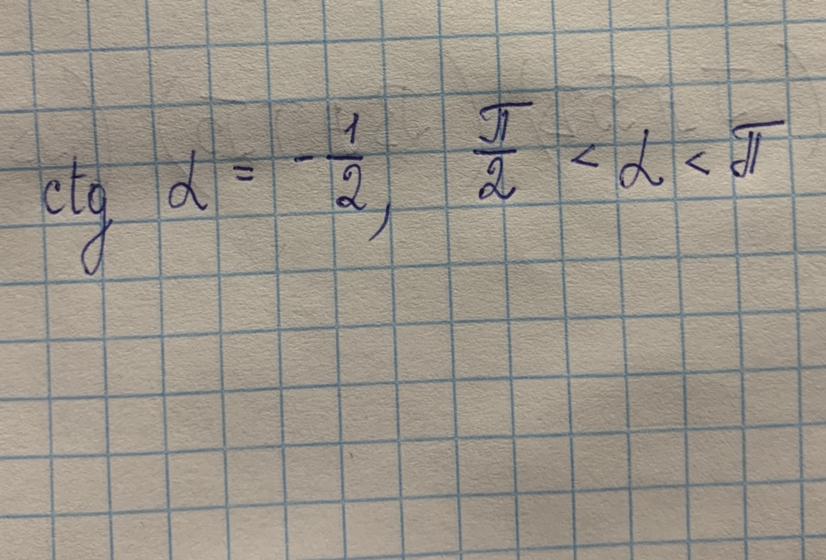 ctg α = -1/2, π/2 < α < π